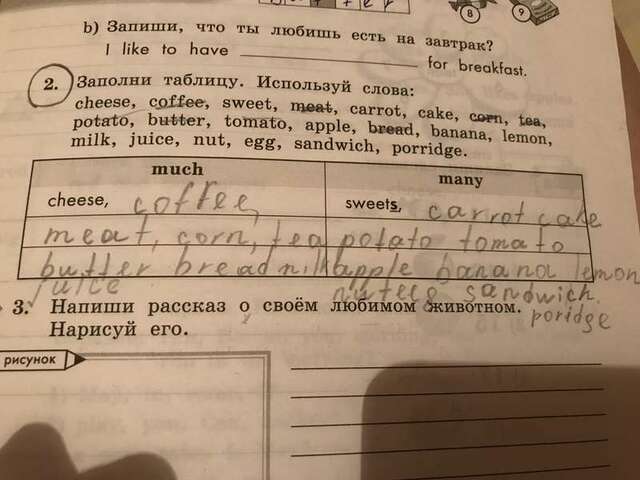 b) Запиши, что ты любишь есть на завтрак?
I like to have ____________ for breakfast.
2. Заполни таблицу. Используй слова:
cheese, coffee, sweet, meat, carrot, cake, corn, tea,
potato, butter, tomato, apple, bread, banana, lemon,
milk, juice, nut, egg, sandwich, porridge.
much
many
cheese, coffee,
meat, corn, tea
butter bread milk
juice
sweets, carrot cake
potato tomato
apple banana lemon
sandwich.
poridge
3. Напиши рассказ о своём любимом животном.
Нарисуй его.
рисунок
8
9